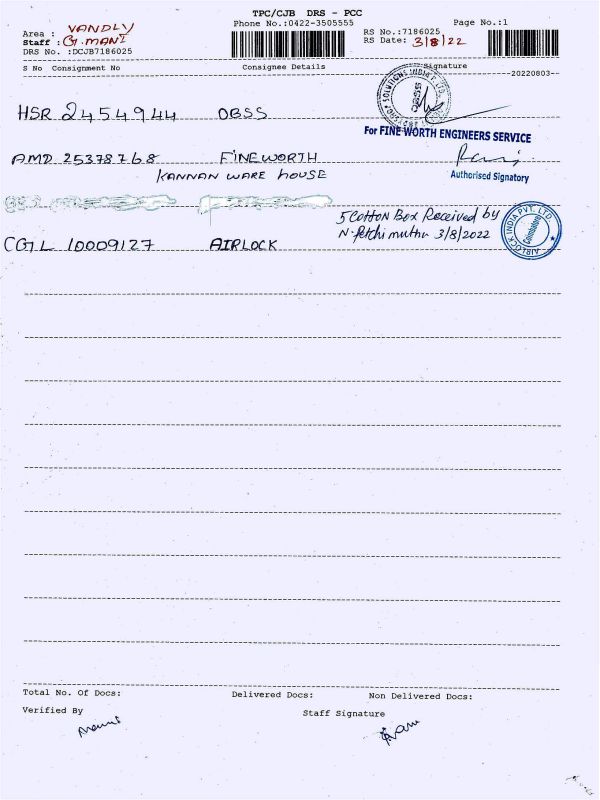 TPC/CJB DRS - PCC
Phone No.:0422-3505555
Page No.:1
Area : VANDLY
Staff : G.MANI
DRS No. :DCJB7186025
RS No.:7186025
RS Date: 3/8/22
S No Consignment No Consignee Details Signature
--20220803--
HSR 2454944 OBSS
SOLUTIONS INDIA P. LTD
For FINE WORTH ENGINEERS SERVICE
AMD 25378768 FINEWORTH
KANNAN WARE HOUSE
Authorised Signatory
5 Cotton Box Received by
N. Petchimuthu 3/8/2022
AIRLOCK INDIA PVT. LTD
Coimbatore
CGL 10009127 AIRLOCK
Total No. Of Docs: Delivered Docs: Non Delivered Docs:
Verified By Staff Signature